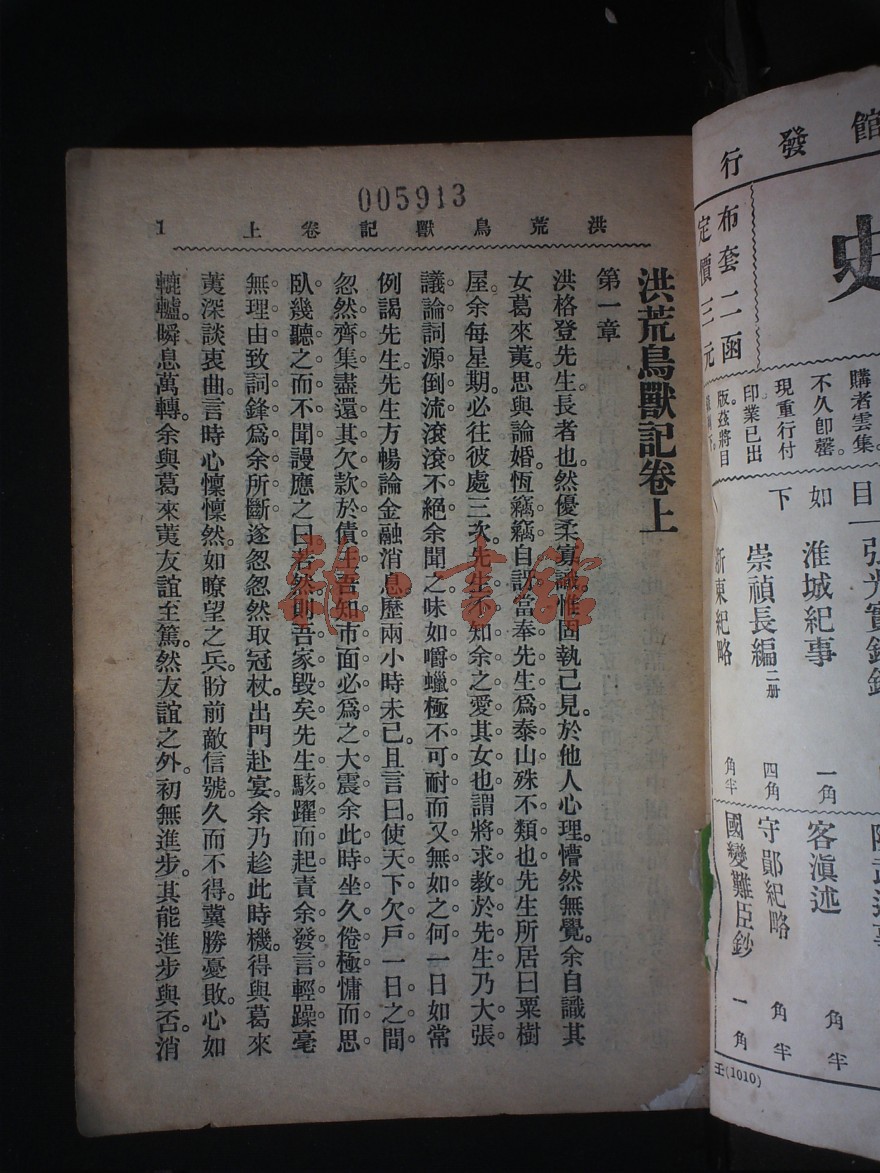 005913
洪荒鳥獸記卷上
1
洪荒鳥獸記卷上
第一章
洪格登先生。長者也。然優柔寡識。惟固執己見。於他人心理。懵然無覺。余自識其
女葛來荑。思與論婚。恆竊竊自訝。當奉先生爲泰山。殊不類也。先生所居曰粟樹
屋。余每星期。必往彼處三次。先生不知余之愛其女也。謂將求教於先生。乃大張
議論。詞源倒流。滾滾不絕。余聞之。味如嚼蠟。極不可耐。而又無如之何。一日如常
例謁先生。先生方暢論金融消息。歷兩小時未已。且言曰。使天下欠戶。一日之間
忽然齊集。盡還其欠款於債主。吾知市面必爲之大震。余此時坐久倦極。慵而思
臥。幾聽之而不聞。謾應之曰。若然。則吾家毀矣。先生駭躍而起。責余發言輕躁。毫
無理由。致詞鋒爲余所斷。遂忽忽然取冠杖。出門赴宴。余乃趁此時機。得與葛來
荑深談衷曲。言時心懍懍然。如瞭望之兵。盼前敵信號。久而不得。冀勝憂敗。心如
轆轤。瞬息萬轉。余與葛來荑友誼至篤。然友誼之外。初無進步。其能進步與否。消
館發行
史
布套二函
定價三元
購者雲集。
不久卽罄。
現重行付
印業已出
版。茲將目
目
如
下
淮城紀事
一角
崇禎長編二册
四角
浙東紀略
角半
客滇述
角半
守鄖紀略
角半
國變難臣鈔
一角
壬(1010)